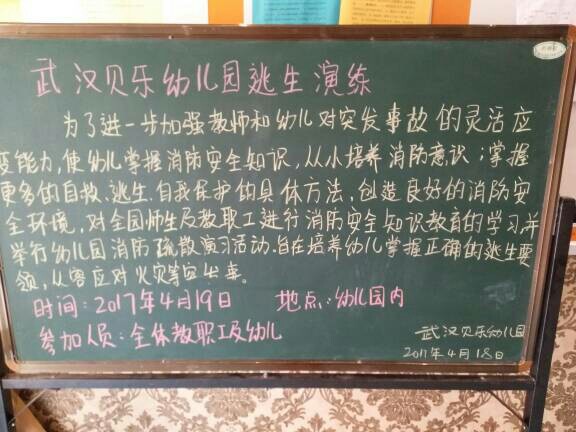 武汉贝乐幼儿园逃生演练
为了进一步加强教师和幼儿对突发事故的灵活应
变能力,使幼儿掌握消防安全知识,从小培养消防意识;掌握
更多的自救、逃生、自我保护的具体方法,创造良好的消防安
全环境,对全园师生及教职工进行消防安全知识教育的学习,并
举行幼儿园消防疏散演习活动.旨在培养幼儿掌握正确的逃生要
领,从容应对火灾等突发事。
时间:2017年4月19日 地点:幼儿园内
参加人员:全体教职工及幼儿
武汉贝乐幼儿园
2017年4月18日